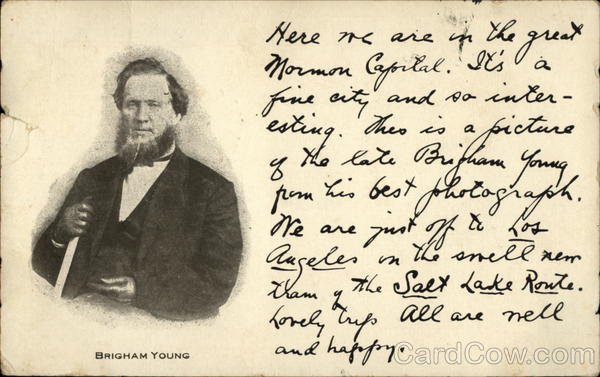 Here we are in the great
Mormon Capital. It's a
fine city and so inter-
esting. This is a picture
of the late Brigham Young
from his best photograph.
We are just off to Los
Angeles on the swell new
train of the Salt Lake Route.
Lovely trip. All are well
and happy.
BRIGHAM YOUNG
CardCow.com